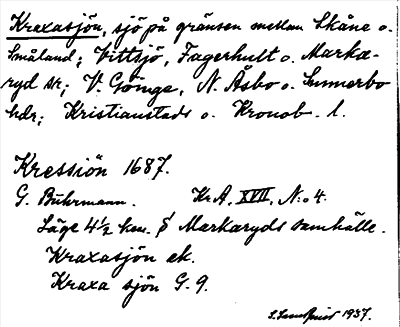 Kraxasjön, sjö på gränsen mellan Skåne o.
Småland; Vittsjö, Fagerhult o. Marka-
ryd skr; V. Göinge, N. Åsbo o. Sunnerbo
hdr; Kristianstads o. Kronob. l.
Kressiön 1687.
G. Buhrmann. Kr.A. XVII, N:o 4.
Läge 4½ km. S Markaryds samhälle.
Kraxasjön ek.
Kraxa sjön G. 9.
1937.